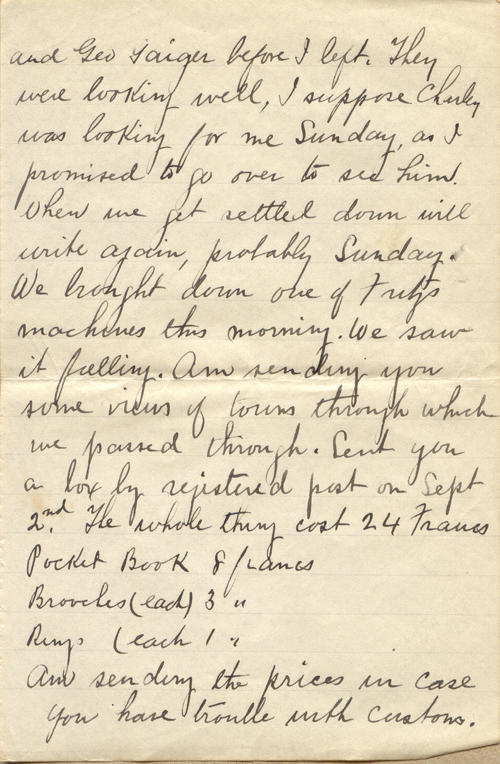 and Geo Saiger before I left. They
were looking well, I suppose Charley
was looking for me Sunday, as I
promised to go over to see him.
When we get settled down will
write again, probably Sunday.
We brought down one of Fritz's
machines this morning. We saw
it falling. Am sending you
some views of towns through which
we passed through. Sent you
a box by registered post on Sept
2nd. The whole thing cost 24 Francs
Pocket Book 8 francs
Brooches (each) 3 "
Rings (each 1 "
Am sending the prices in case
you have trouble with customs.